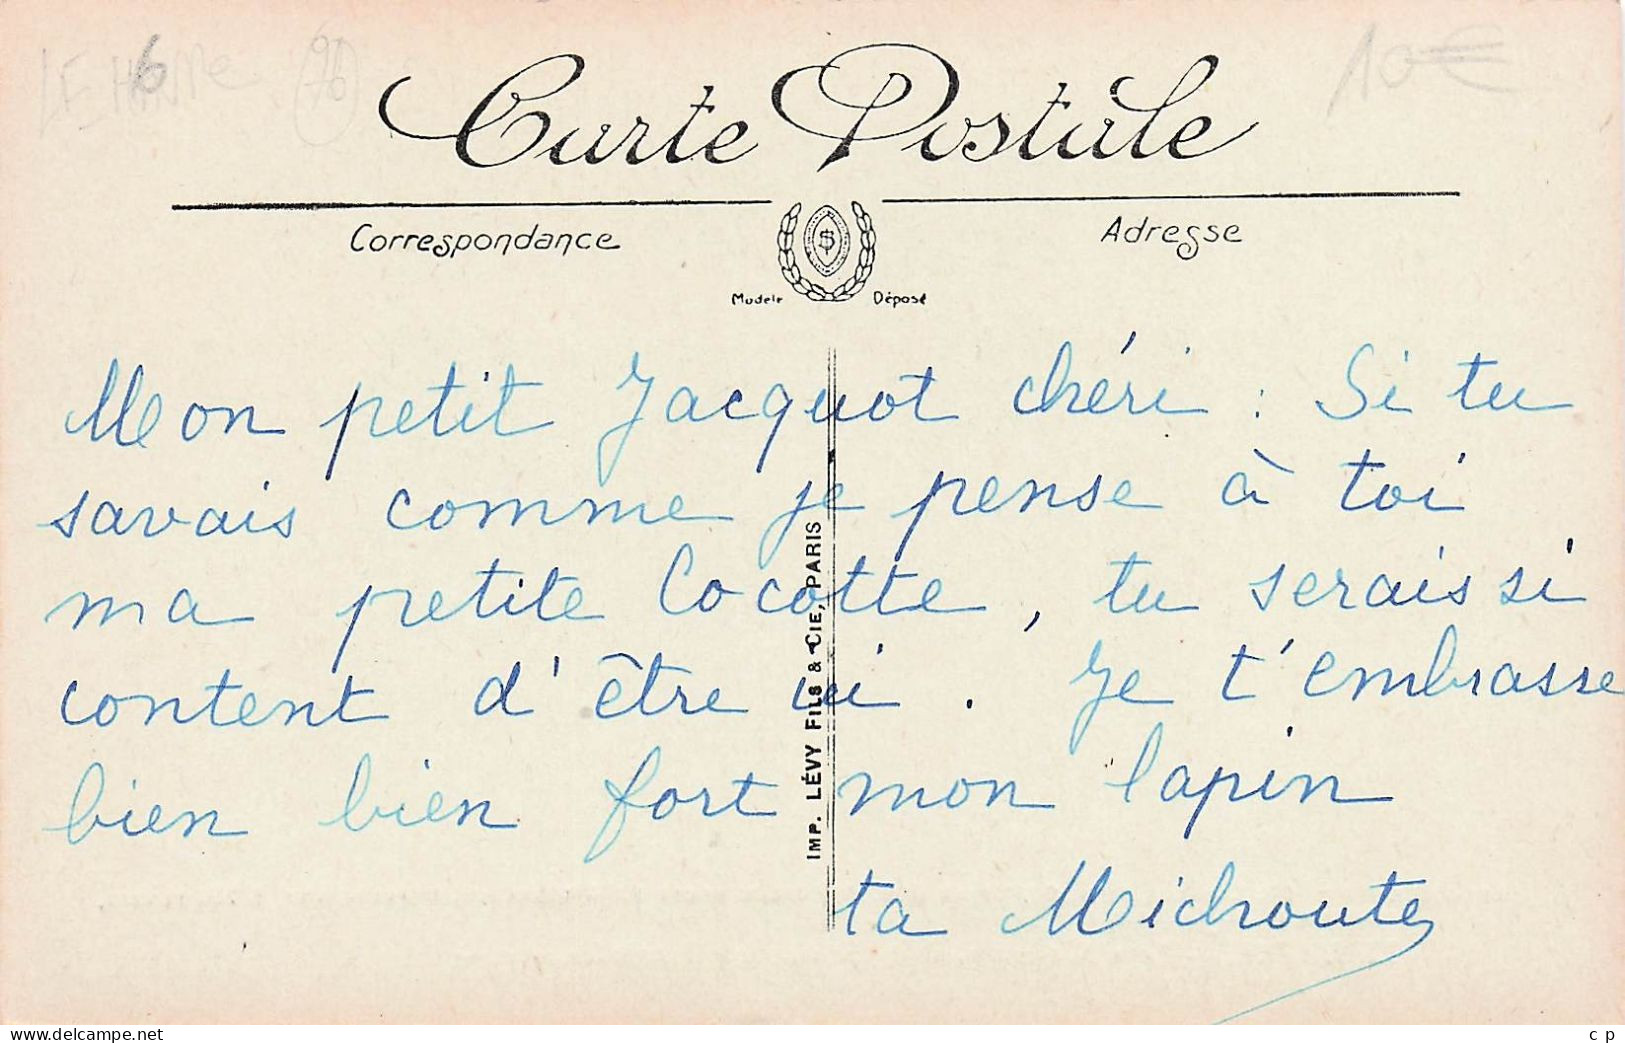 LE HAVRE 76
6
10€
Carte Postale
Correspondance
Adresse
Modèle Déposé
Mon petit Jacquot chéri : Si tu
savais comme je pense à toi
ma petite Cocotte, tu serais si
content d'être ici. Je t'embrasse
bien bien fort mon lapin
ta Michoute
IMP. LÉVY FILS & CIE, PARIS
www.delcampe.net
c p